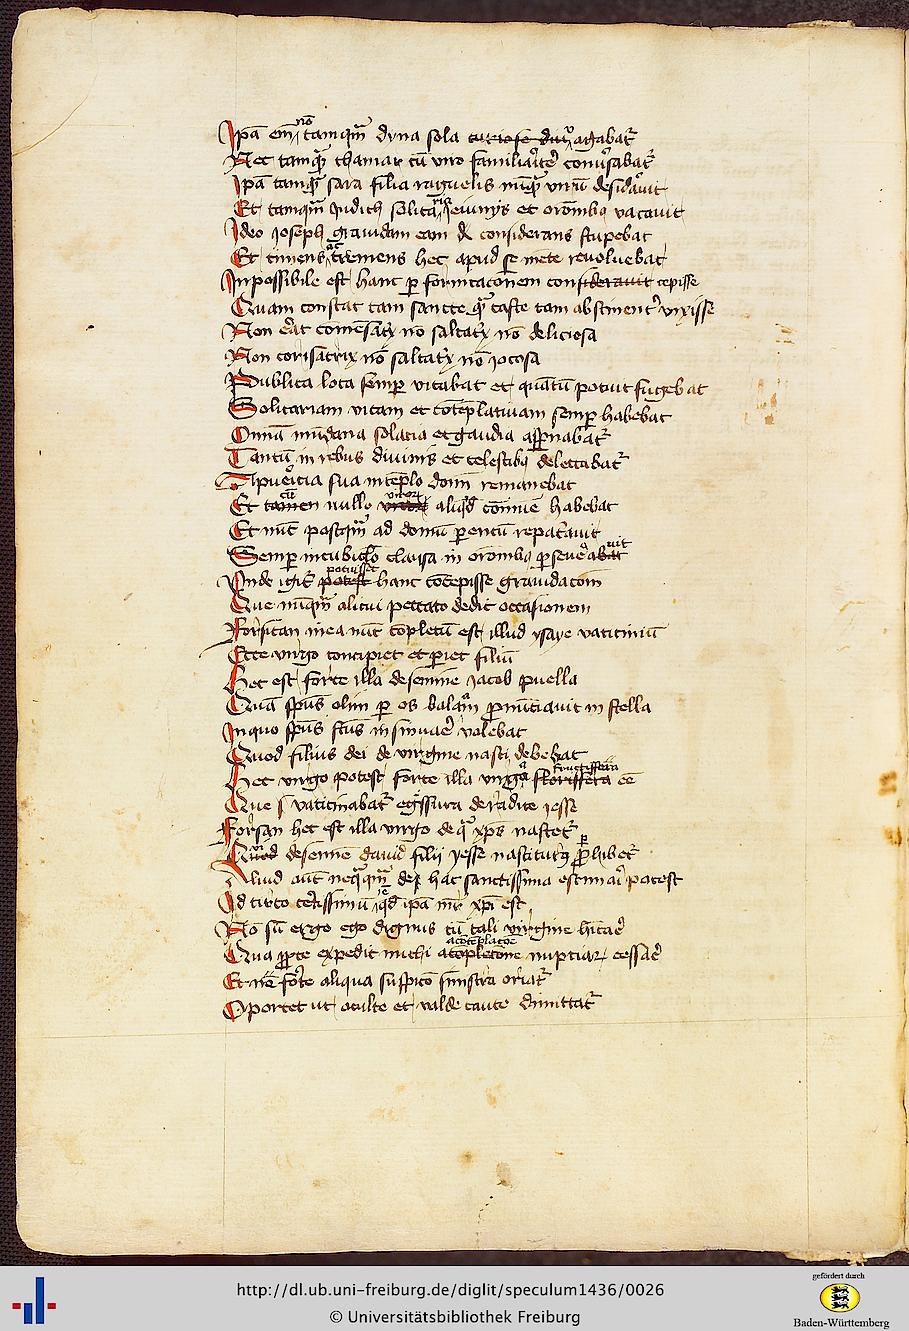 Ipa em no tamqm dyna sola curiose dum agabatr
Nec tamqm thamar cu viro familiariter conversabatr
Ipa tamqm sara filia raguelis nuqm viru desidavit
Et tamqm Judith solitaria Jeiunijs et orombus vacavit
Ideo joseph gravidam eam considerans stupebat
Et timens ac tremens hec apud se mete revoluebat
Inpossibile est hanc per fornicacionem considerauit cepisse
Quam constat tam sancte qm caste tam abstinentr vixisse
Non erat comesatrix no saltatrix no deliciosa
Non corisatrix no saltatrix no jocosa
Publica loca semper vitabat et quatu potuit fugebat
Solitariam vitam et cotemplativam semper habebat
Omnia mudana solacia et gaudia aspernabatr
Tantu in rebus divinis et celestibus delectabatr
A puericia sua in teplo domi remanebat
Et tamen cu nullo viror aliqd comune habebat
Et nuc postqm ad domu parentu repatriavit
Semper in cubiclo clausa in orombus perseverabat uit
Unde igitr potest potuisset hanc cocepisse gravidacom
Que nuqm alicui peccato dedit occasionem
Forsitan in ea nuc copletu est illud ysaye vaticiniu
Ecce virgo concipiet et pariet filiu
Hec est forte illa de semine jacob puella
Qua spus olim per os balam pronuciavit in stella
In quo spus scus insinuare volebat
Quod filius dei de virgine nasci debebat
Hec virgo potest forte illa virga florissera fructissera ee
Que vaticinabatr egssura de radice jesse
Forsan hec est illa virgo de qua xps nascetr
Qui Quod de semine david filii yesse nasciturus perhibetr
Aliud aut neququm de hac sanctissima estimari potest
Id circo certissimu est qd ipa mr xpi est
No su ergo ego dignus cu tali virgine hitare
Qua propte expedit michi a copletone acoteplacoe nuptiar cessare
Et ne forte aliqua suspico sinistra oriatr
Oportet ut oculte et valde caute dimittatr
http://dl.ub.uni-freiburg.de/diglit/speculum1436/0026
© Universitätsbibliothek Freiburg
gefördert durch
Baden-Württemberg